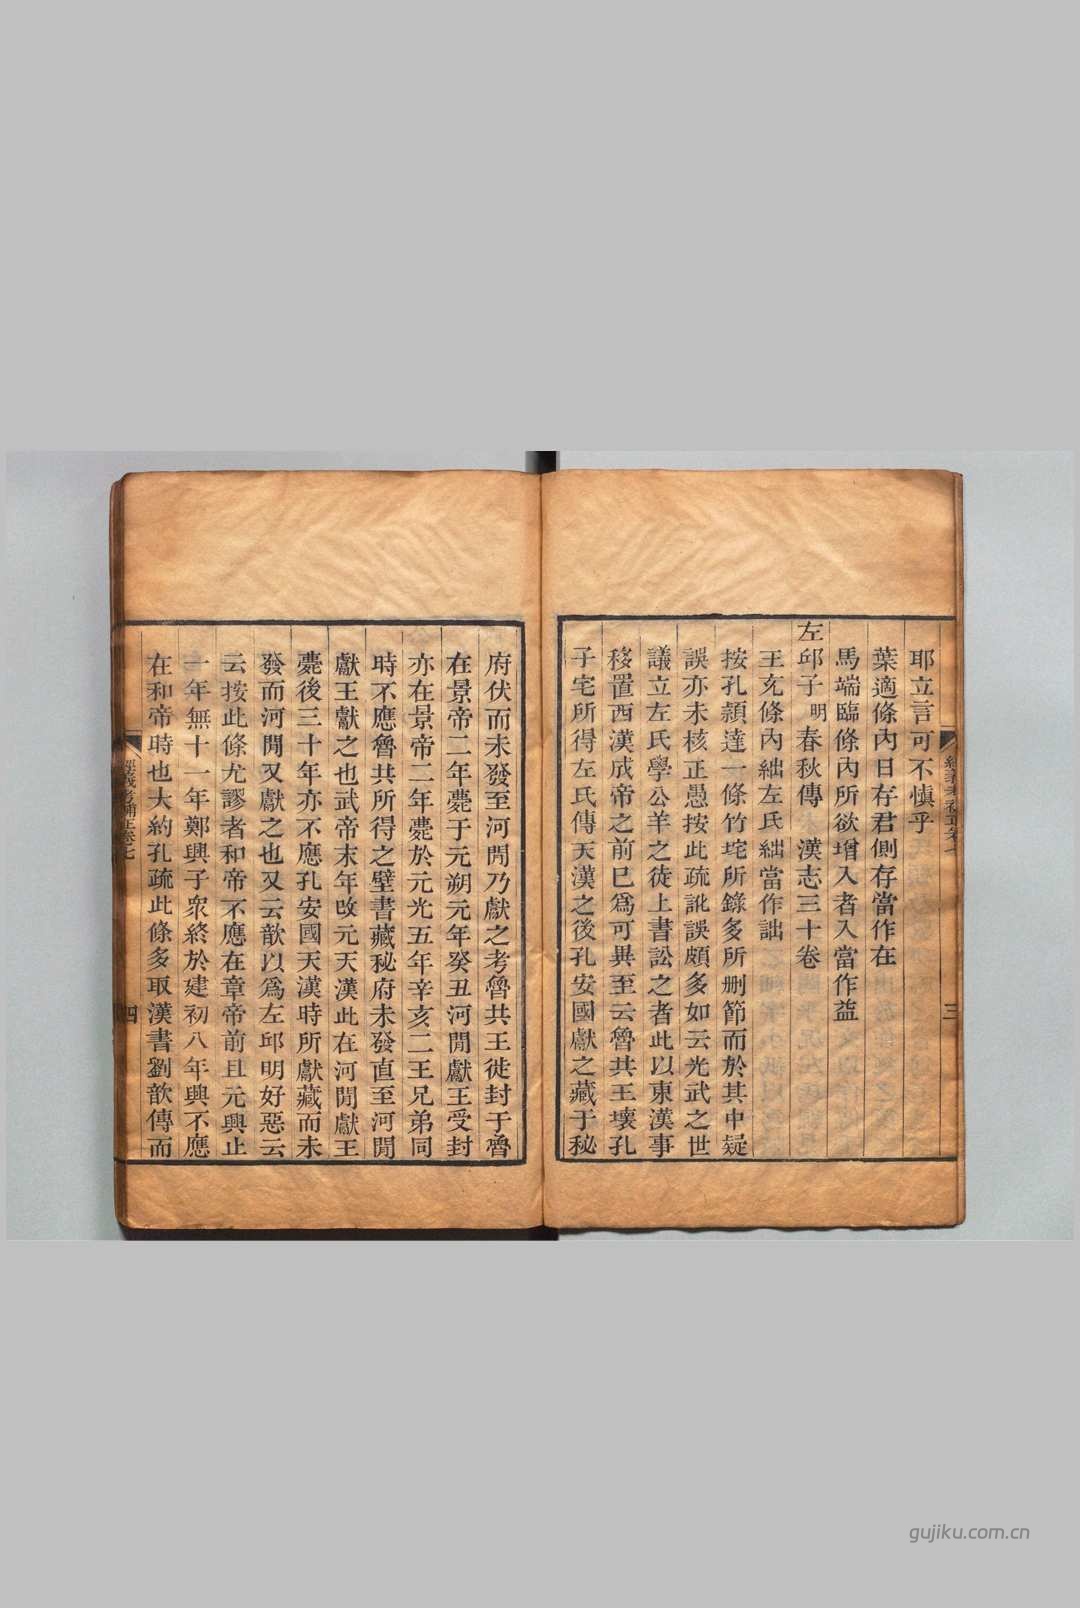 耶立言可不慎乎
葉適條內日存君側存當作在
馬端臨條內所欲增入者入當作益
左邱子明春秋傳 漢志三十卷
王充條內絀左氏絀當作詘
按孔頴達一條竹垞所錄多所刪節而於其中疑
誤亦未核正愚按此疏訛誤頗多如云光武之世
議立左氏學公羊之徒上書訟之者此以東漢事
移置西漢成帝之前已爲可異至云魯共王壞孔
子宅所得左氏傳天漢之後孔安國獻之藏于秘
經義考補正卷七
三
府伏而未發至河閒乃獻之考魯共王徙封于魯
在景帝二年薨于元朔元年癸丑河閒獻王受封
亦在景帝二年薨於元光五年辛亥二王兄弟同
時不應魯共所得之壁書藏秘府未發直至河閒
獻王獻之也武帝末年改元天漢此在河閒獻王
薨後三十年亦不應孔安國天漢時所獻藏而未
發而河閒又獻之也又云歆以爲左邱明好惡云
云按此條尤謬者和帝不應在章帝前且元興止
一年無十一年鄭興子衆終於建初八年興不應
在和帝時也大約孔疏此條多取漢書劉歆傳而
經義考補正卷七
四
gujiku.com.cn